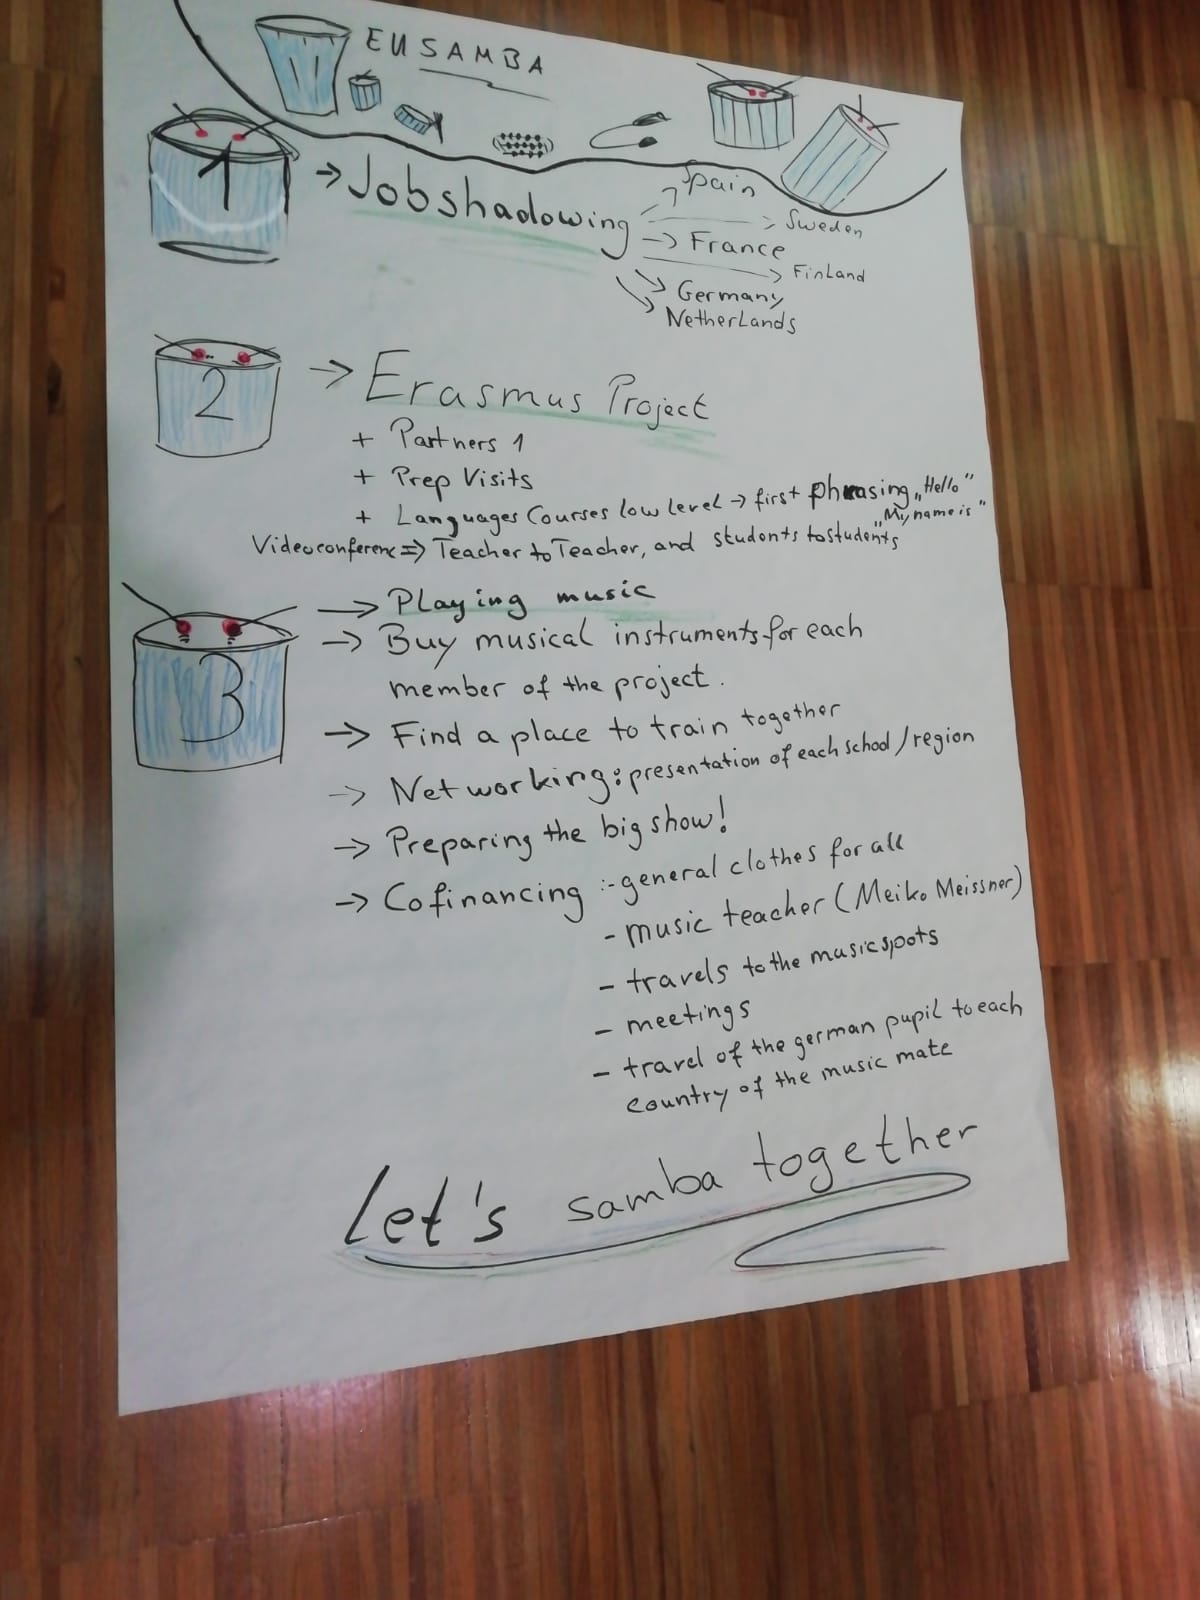 EU SAMBA
1
→ Jobshadowing
→ Spain
→ Sweden
→ France
→ Finland
→ Germany
→ Netherlands
2
→ Erasmus Project
+ Partners 1
+ Prep Visits
+ Languages Courses low level → first phrasing „Hello"
„My name is"
Videoconferenc => Teacher to Teacher, and students to students
3
→ Playing music
→ Buy musical instruments for each
member of the project.
→ Find a place to train together
→ Networking: presentation of each school/region
→ Preparing the big show!
→ Cofinancing :- general clothes for all
- music teacher (Meiko Meissner)
- travels to the music spots
- meetings
- travel of the german pupil to each
country of the music mate
Let's samba together